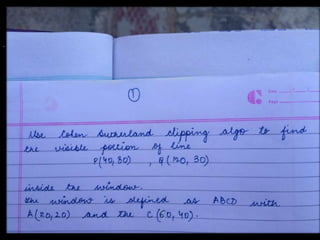 ①
Date
Page
Use Cohen Sutherland clipping algo to find
the visible portion of line
P(40,30) , Q(70,30)
inside the window.
the window is defined as ABCD with
A(20,20) and the C(60,40).